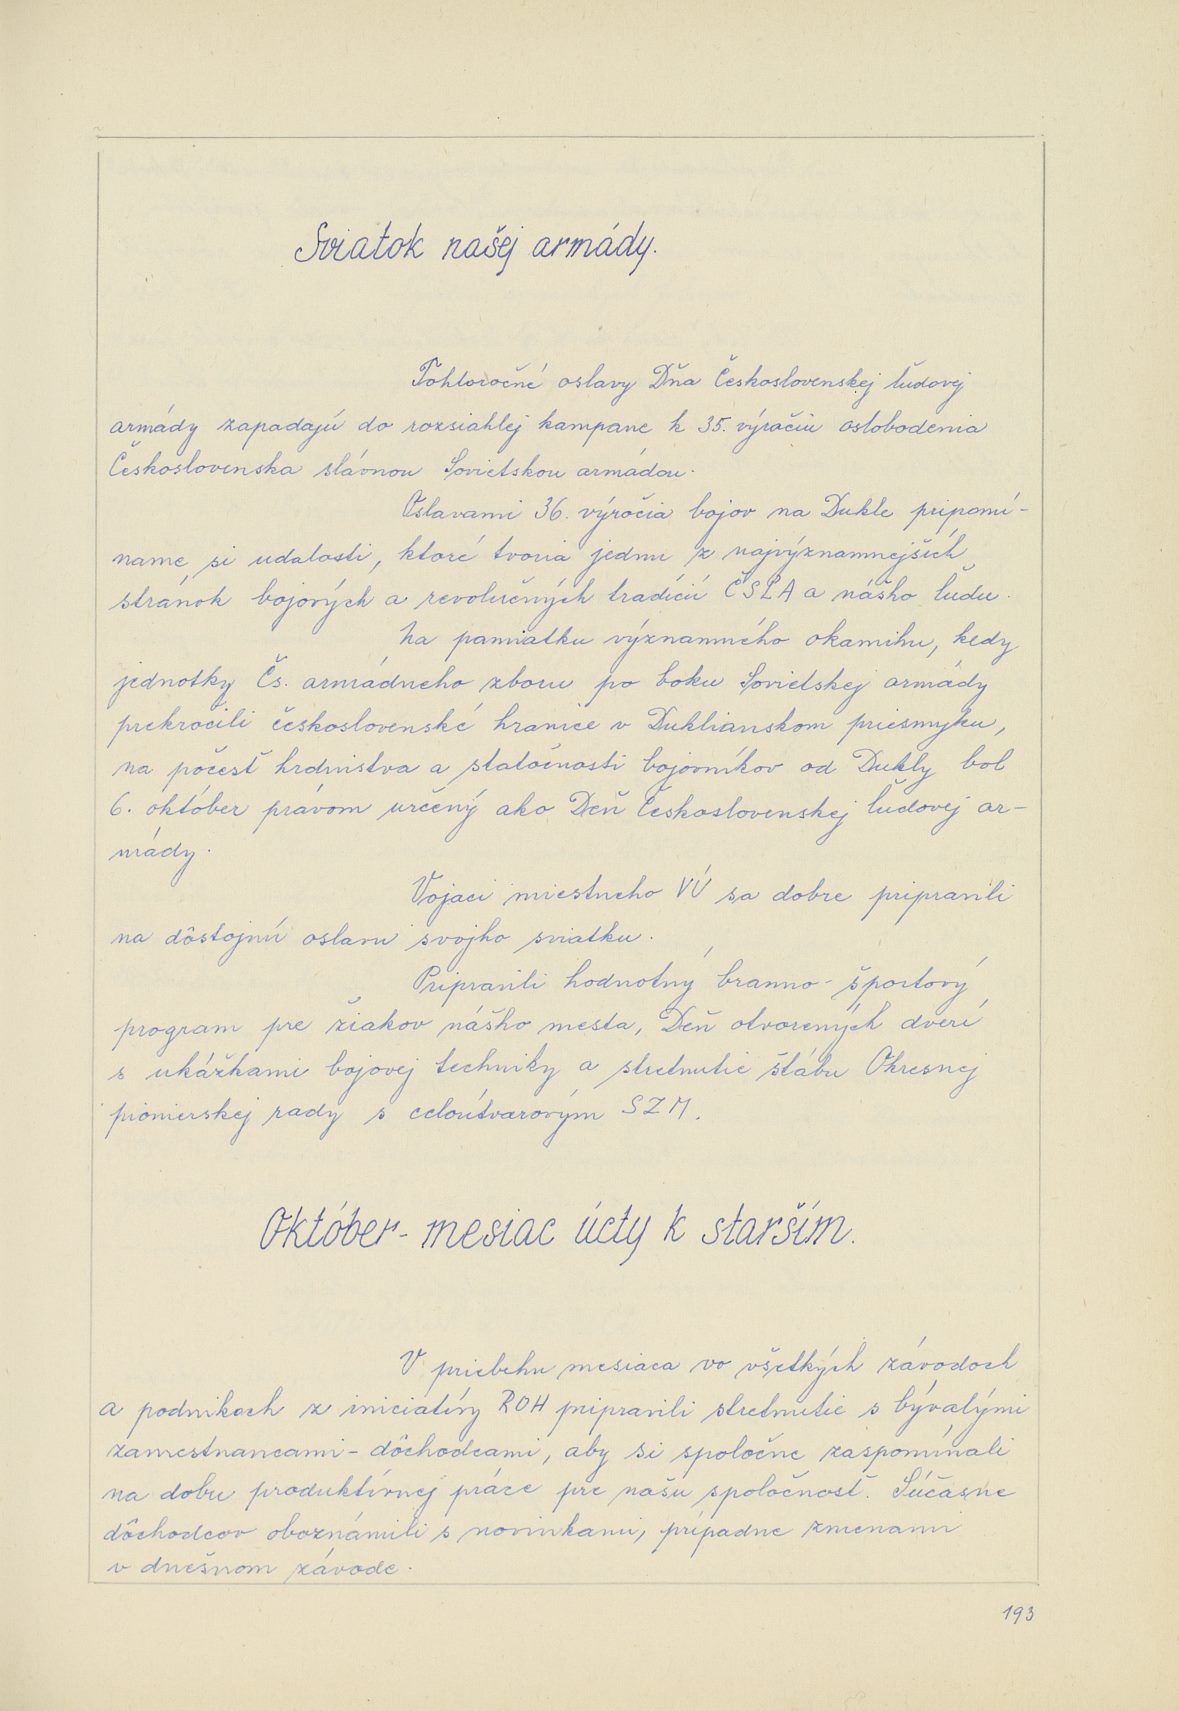 Sviatok našej armády.
Tohtoročné oslavy Dňa Československej ľudovej
armády zapadajú do rozsiahlej kampane k 35. výročiu oslobodenia
Československa slávnou Sovietskou armádou.
Oslavami 36. výročia bojov na Dukle pripomí-
name si udalosti, ktoré tvoria jednu z najvýznamnejších
stránok bojových a revolučných tradícií ČSĽA a nášho ľudu.
Na pamiatku významného okamihu, kedy
jednotky Čs. armádneho zboru po boku Sovietskej armády
prekročili československé hranice v Duklianskom priesmyku,
na počesť hrdinstva a statočnosti bojovníkov od Dukly bol
6. október právom určený ako Deň Československej ľudovej ar-
mády.
Vojaci miestneho VÚ sa dobre pripravili
na dôstojnú oslavu svojho sviatku.
Pripravili hodnotný branno-športový
program pre žiakov nášho mesta, Deň otvorených dverí
s ukážkami bojovej techniky a stretnutie štábu Okresnej
pionierskej rady s celoútvarovým SZM.
Október - mesiac úcty k starším.
V priebehu mesiaca vo všetkých závodoch
a podnikoch z iniciatívy ROH pripravili stretnutie s bývalými
zamestnancami - dôchodcami, aby si spoločne zaspomínali
na dobu produktívnej práce pre našu spoločnosť. Súčasne
dôchodcov oboznámili s novinkami, prípadne zmenami
v dnešnom závode.
193